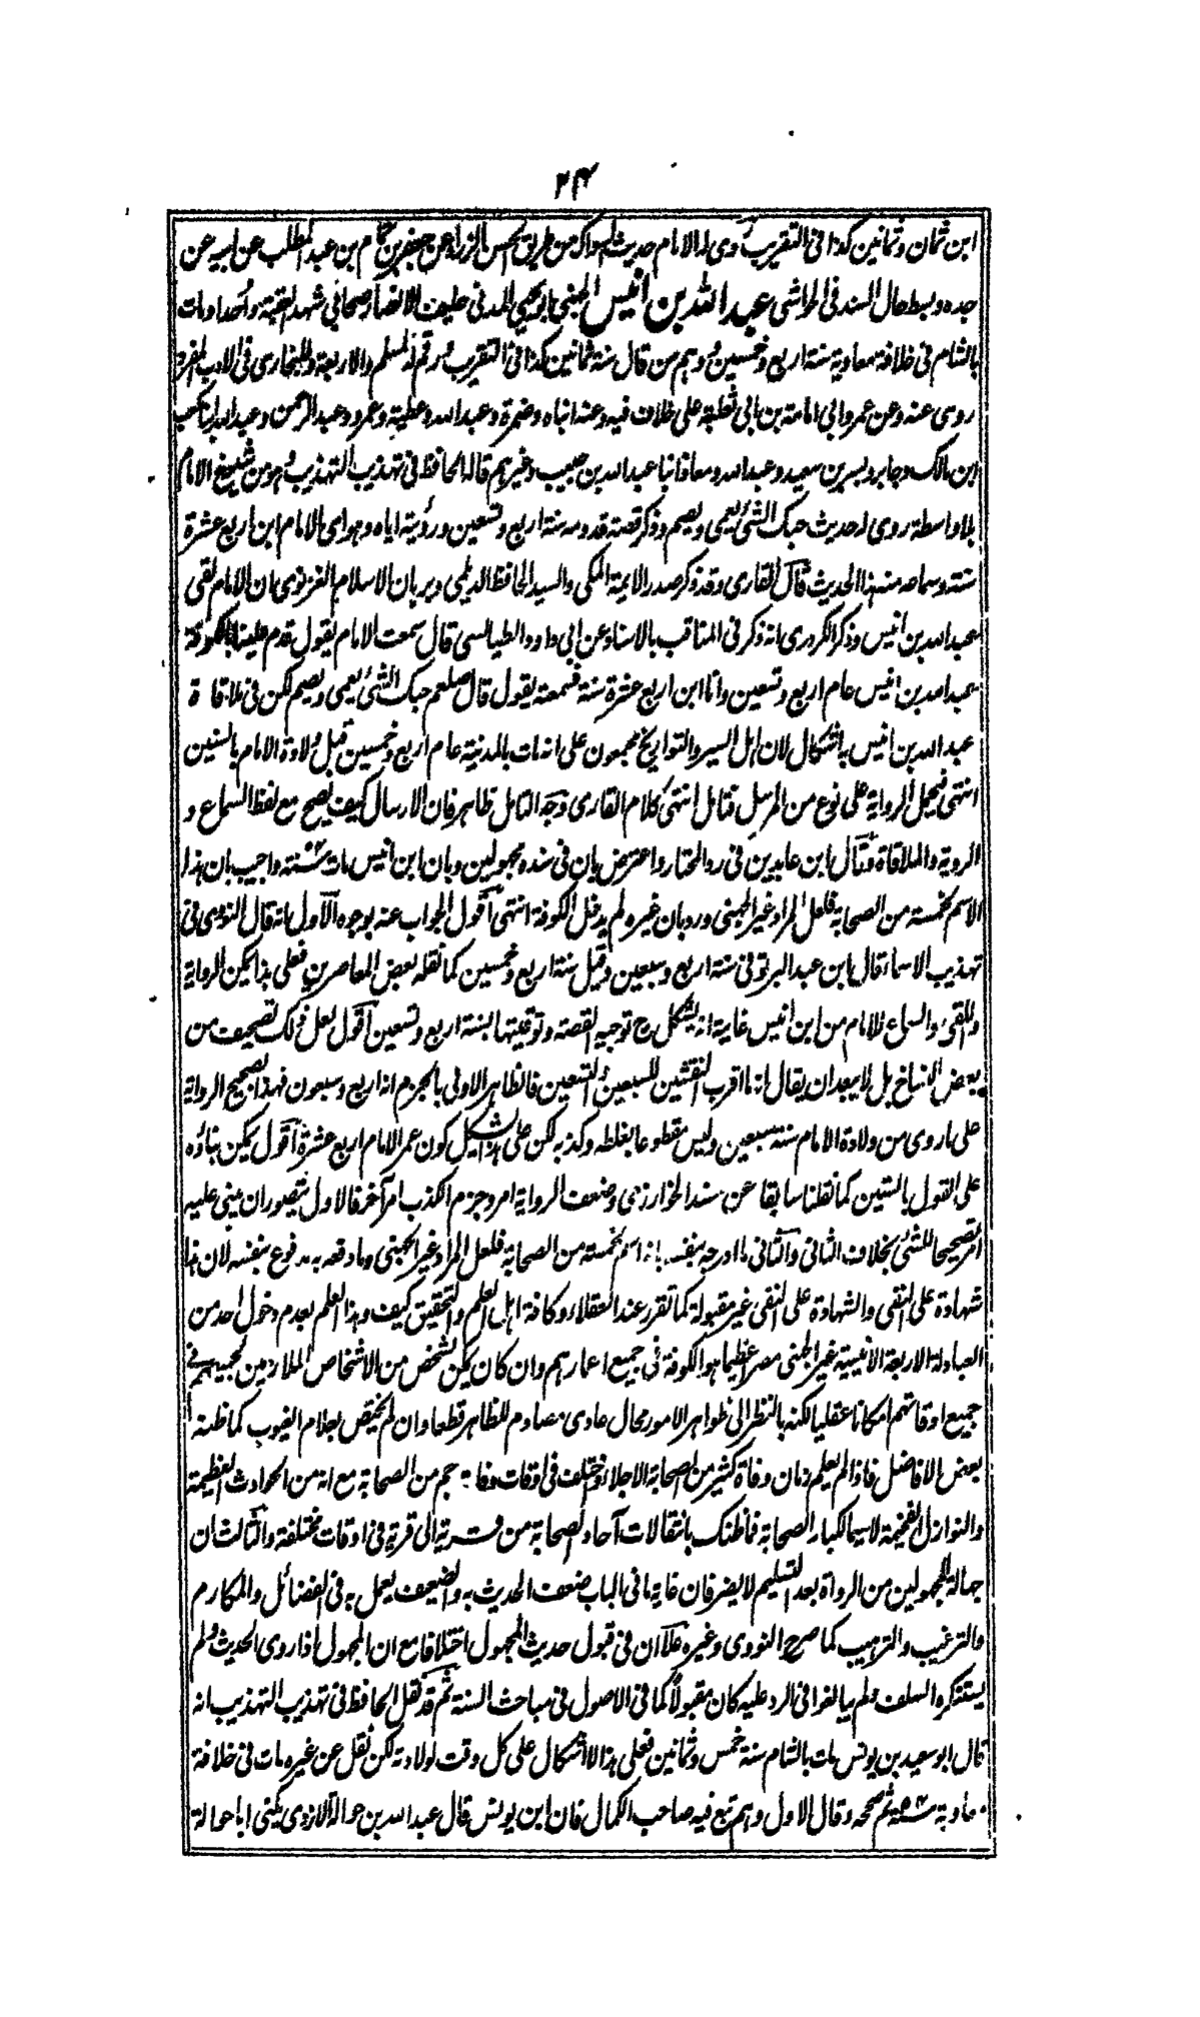 ۲۴
ابن ثمان وثمانين كذا في التقريب روى له الامام حديث السواك من طريق الحسن الزراد عن جعفر بن تمام بن عبد المطلب عن ابيه عن
جده وبسط حال السند في الحواشي عبد الله بن انيس الجهني ابو يحيى المدني حليف الانصار صحابي شهد العقبة واحدا ومات
بالشام في خلافة معاوية سنة اربع وخمسين ووهم من قال سنة ثمانين كذا في التقريب ورقم له لمسلم والاربعة وللبخاري في الادب المفرد
روى عنه وعن عمر وابي امامة بن ابي ثعلبة على خلاف فيه وعنه ابناه وضمرة وعبد الله وعطية وعمرو وعبد الرحمن وعبد الله ابنا كعب
ابن مالك وجابر وبسر بن سعيد وعبد الله ومعاذ ابنا عبد الله بن حبيب وغيرهم قاله الحافظ في تهذيب التهذيب وهو من شيوخ الامام
بلا واسطة روى له حديث حبك الشئ يعمي ويصم وذكر قصة قدومه سنة اربع وتسعين ورؤية اياه وهو اي الامام ابن اربع عشرة
سنة وسماعه منه هذا الحديث قال القاري وقد ذكر صدر الايمة المكي والسيد الحافظ الديلمي وبرهان الاسلام الغزنوي ان الامام لقى
عبد الله بن انيس وذكر الكردري انه ذكر في المناقب بالاسناد عن ابي داود الطيالسي قال سمعت الامام يقول قدم علينا بالكوفة
عبد الله بن انيس عام اربع وتسعين وانا ابن اربع عشرة سنة فسمعته يقول قال صلعم حبك الشئ يعمي ويصم لكن في ملاقاة
عبد الله بن انيس اشكال لان اهل السير والتواريخ مجمعون على انه مات بالمدينة عام اربع وخمسين قبل ولادة الامام بالسنين
انتهى فيحمل الرواية على نوع من المرسل فتامل انتهى كلام القاري وجه التامل ظاهر فان الارسال كيف يصح مع لفظ السماع و
الروية والملاقاة وقال ابن عابدين في رد المحتار واعترض بان في سنده مجهولين وبان ابن انيس مات سنة ۵۴ واجيب بان هذا
الاسم لخمسة من الصحابة فلعل المراد غير الجهني ورد بان غيره لم يدخل الكوفة انتهى اقول الجواب عنه بوجوه الاول انه قال النووي في
تهذيب الاسماء قال ابن عبد البر توفي سنة اربع وسبعين وقيل سنة اربع وخمسين كما نقله بعض المعاصرين فعلى هذا يمكن الرواية
واللقي والسماع للامام من ابن انيس غاية انه يشكل ح توجيه القصة وتوقيتها بسنة اربع وتسعين اقول لعل ذلك تصحيف من
بعض النساخ بل لا يبعد ان يقال انه ما اقرب النقشين للسبعين والتسعين فالظاهر الاولى بالجزم انه اربع وسبعون فهذا تصحيح الرواية
على ما روى من ولادة الامام سنة سبعين وليس مقطوعا بغلطه وكذبه لكن على هذا يشكل كون عمر الامام اربع عشرة اقول يمكن بناؤه
على القول بالستين كما نقلنا سابقا عن سند الخوارزمي وضعف الرواية امر وجزم الكذب امر آخر فالاول يتصور ان يبني عليه
امر تصحيحا للشئ بخلاف الثاني والثاني ما ادرجه بنفسه بانه اسم لخمسة من الصحابة فلعل المراد غير الجهني وما دفعه به مدفوع بنفسه لان هذا
شهادة على النفي والشهادة على النفي غير مقبولة كما تقرر عند العقلاء وكافة اهل العلم والتحقيق كيف وهذا العلم بعدم دخول احد من
العبادلة الاربعة الانيسية غير الجهني مصرا عظيما هو الكوفة في جميع اعمارهم وان كان يمكن لشخص من الاشخاص الملازمين لجميعهم في
جميع اوقاتهم امكانا عقليا لكنه بالنظر الى ظواهر الامور محال عادي مصادم للظاهر قطعا وان لم يختص بعلام الغيوب كما ظنه
بعض الافاضل فاذا لم يعلم زمان وفاة كثير من الصحابة الاجلاء واختلف في اوقات وفاة جم من الصحابة مع انه من الحوادث العظيمة
والنوازل الفخيمة لا سيما لكبار الصحابة فما ظنك بانتقالات آحاد الصحابة من قرية الى قرية في اوقات مختلفة والثالث ان
جهالة المجهولين من الرواة بعد التسليم لا يضر فان غاية ما في الباب ضعف الحديث به والضعيف يعمل به في الفضائل والمكارم
والترغيب والترهيب كما صرح النووي وغيره علا ان في قبول حديث المجهول اختلافا مع ان المجهول اذا روى الحديث ولم
يستنكره السلف ولم يبالغوا في الرد عليه كان مقبولا كما في الاصول في مباحث السنة ثم قد نقل الحافظ في تهذيب التهذيب انه
قال ابو سعيد بن يونس مات بالشام سنة خمس وثمانين فعلى هذا لا اشكال على كل وقت لولادته لكن نقل عن غيره مات في خلافة
معاوية سنة ۵۴ ثم صححه وقال الاول وهم تبع فيه صاحب الكمال فان ابن يونس قال عبد الله بن حوالة الازدي يكنى ابا حوالة